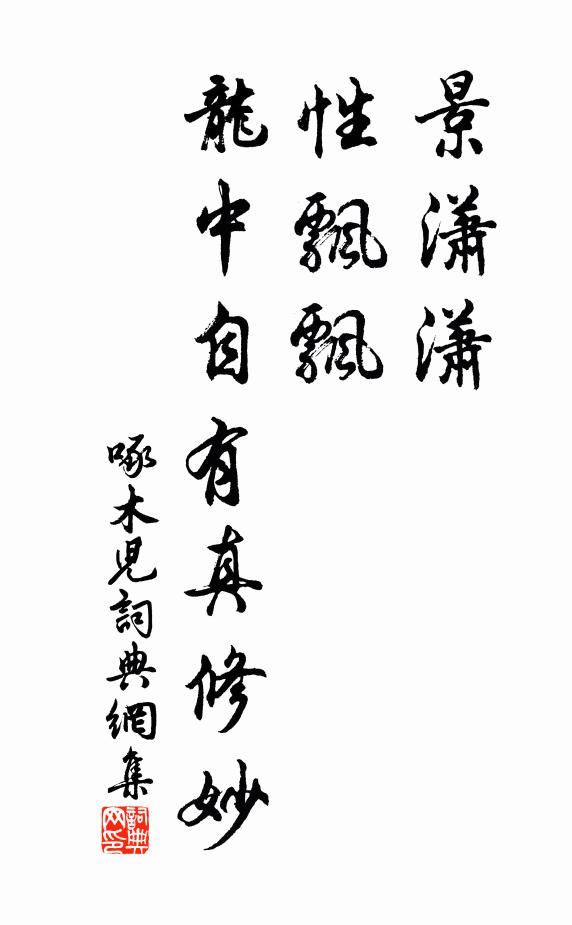 景瀟瀟
性飄飄
龍中自有真修妙
啄木兒詞典網集
詞典网印